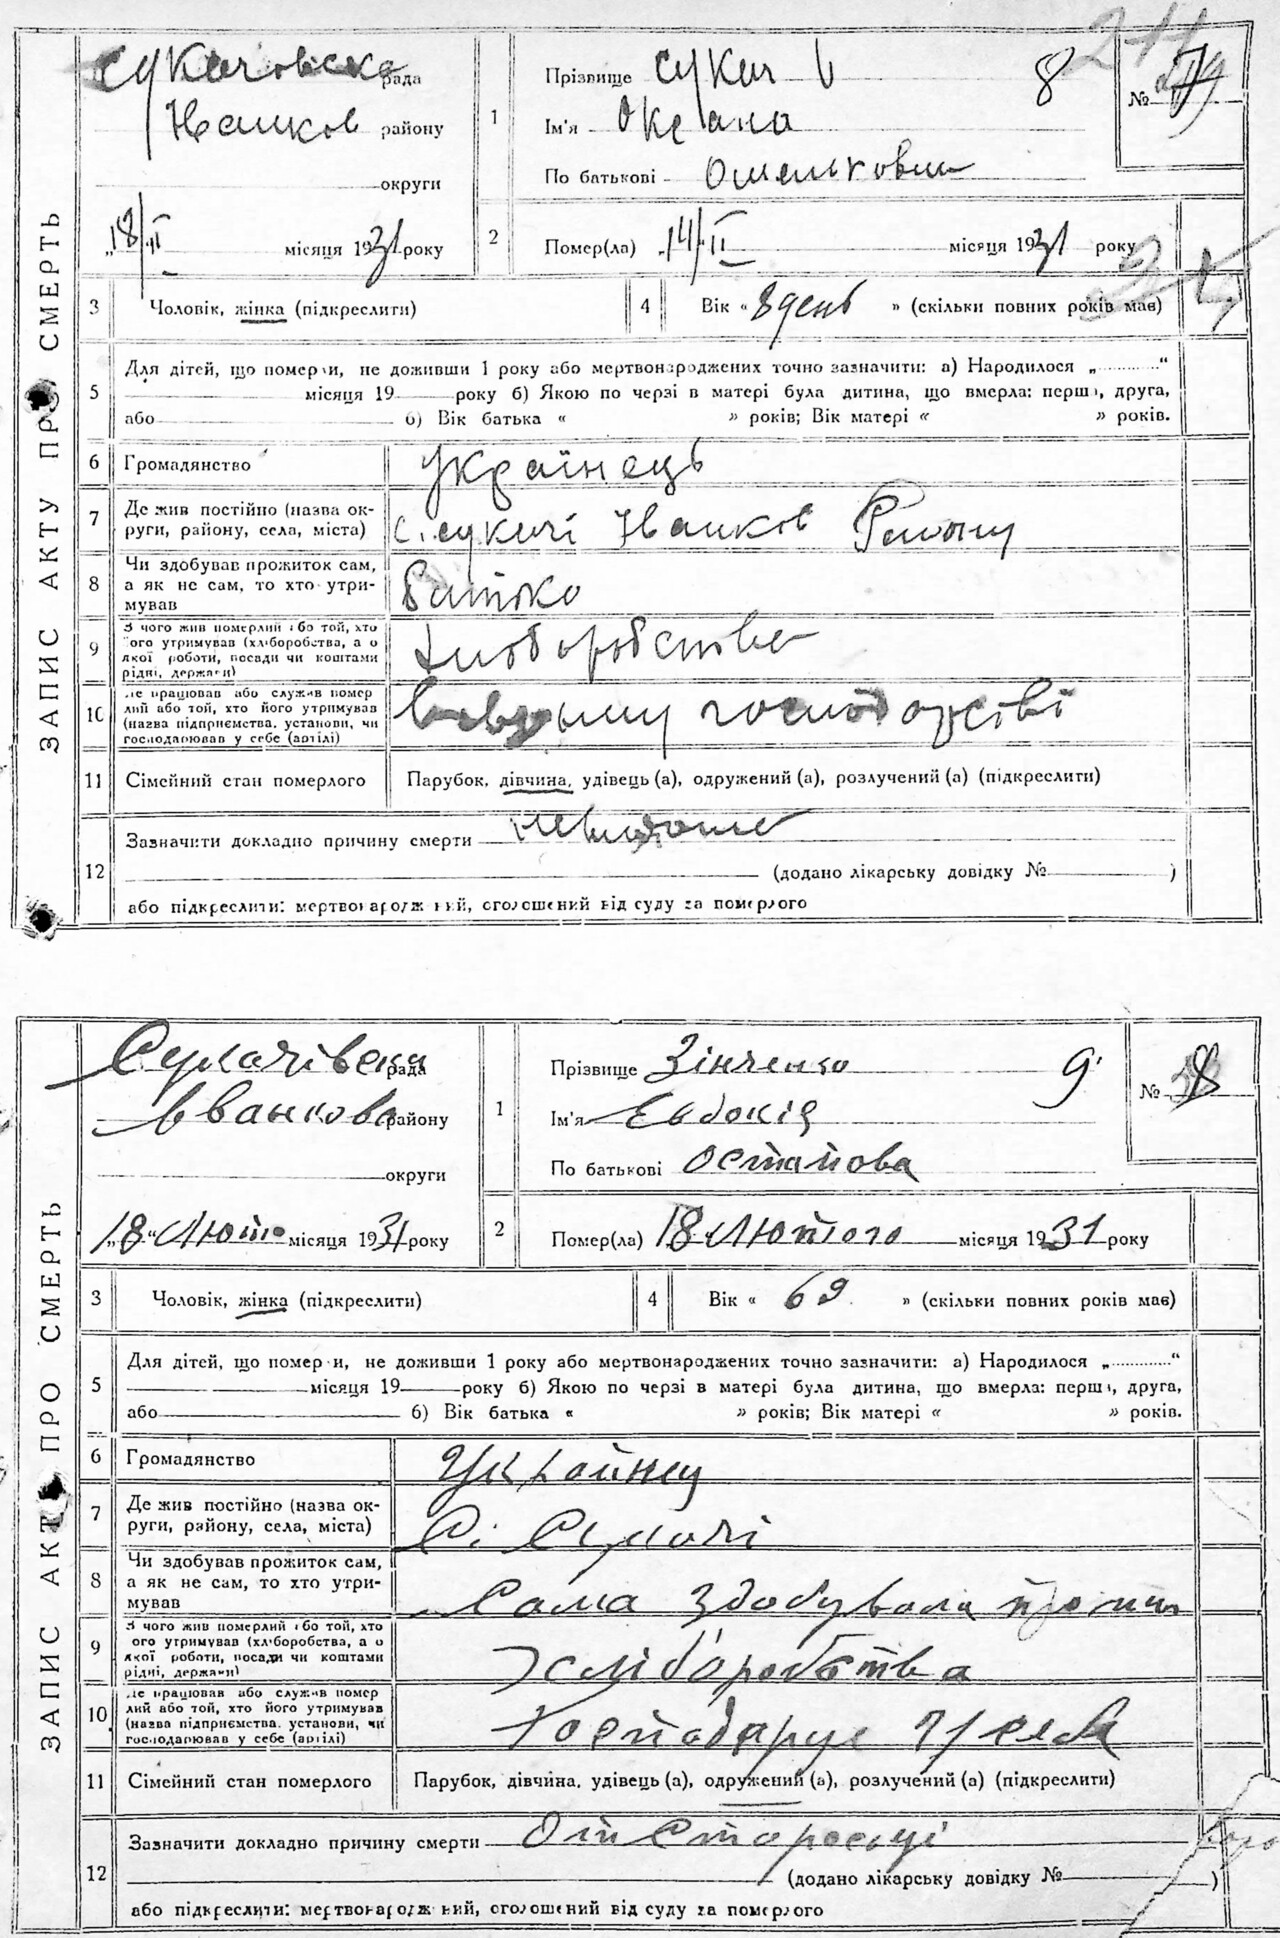 ЗАПИС АКТУ ПРО СМЕРТЬ
Сукачовска рада
Иванков району
округи
„18/II місяця 1931 року
1
Прізвище Сукач
8
Ім'я Оксана
По батькові Омельковна
№
2
Помер(ла) „14/II місяця 1931 року
3
Чоловік, жінка (підкреслити)
4
Вік « 8 день » (скільки повних років має)
5
Для дітей, що померли, не доживши 1 року або мертвонароджених точно зазначити: а) Народилося „ “
місяця 19 року б) Якою по черзі в матері була дитина, що вмерла: перша, друга,
або б) Вік батька « » років; Вік матері « » років.
6
Громадянство українець
7
Де жив постійно (назва ок-
руги, району, села, міста) с. сукачі Иванков Району
8
Чи здобував прожиток сам,
а як не сам, то хто утри-
мував Батько
9
З чого жив померлий або той, хто
його утримував (хліборобства, а о
якої роботи, посади чи коштами
рідні, держави) хлоборобства
10
Де працював або служив помер
лий або той, хто його утримував
(назва підприємства, установи, чи
господарював у себе (артілі) господарстві
11
Сімейний стан померлого Парубок, дівчина, удівець (а), одружений (а), розлучений (а) (підкреслити)
12
Зазначити докладно причину смерти
(додано лікарську довідку № )
або підкреслити: мертвонароджений, оголошений від суду за померлого
ЗАПИС АКТУ ПРО СМЕРТЬ
Сукачівска рада
Іванково району
округи
„18“ Люто місяця 1931 року
1
Прізвище Зінченко
9
Ім'я Евдокія
По батькові Остапова
№ 8
2
Помер(ла) 18 Лютого місяця 1931 року
3
Чоловік, жінка (підкреслити)
4
Вік « 69 » (скільки повних років має)
5
Для дітей, що померли, не доживши 1 року або мертвонароджених точно зазначити: а) Народилося „ “
місяця 19 року б) Якою по черзі в матері була дитина, що вмерла: перша, друга,
або б) Вік батька « » років; Вік матері « » років.
6
Громадянство Украйнец
7
Де жив постійно (назва ок-
руги, району, села, міста) С. Сукачі
8
Чи здобував прожиток сам,
а як не сам, то хто утри-
мував Сама здобувала
9
З чого жив померлий або той, хто
його утримував (хліборобства, а о
якої роботи, посади чи коштами
рідні, держави) Хліборобства
10
Де працював або служив помер
лий або той, хто його утримував
(назва підприємства, установи, чи
господарював у себе (артілі) Господарує У себя
11
Сімейний стан померлого Парубок, дівчина, удівець (а), одружений (а), розлучений (а) (підкреслити)
12
Зазначити докладно причину смерти От Старосьці
(додано лікарську довідку № )
або підкреслити: мертвонароджений, оголошений від суду за померлого